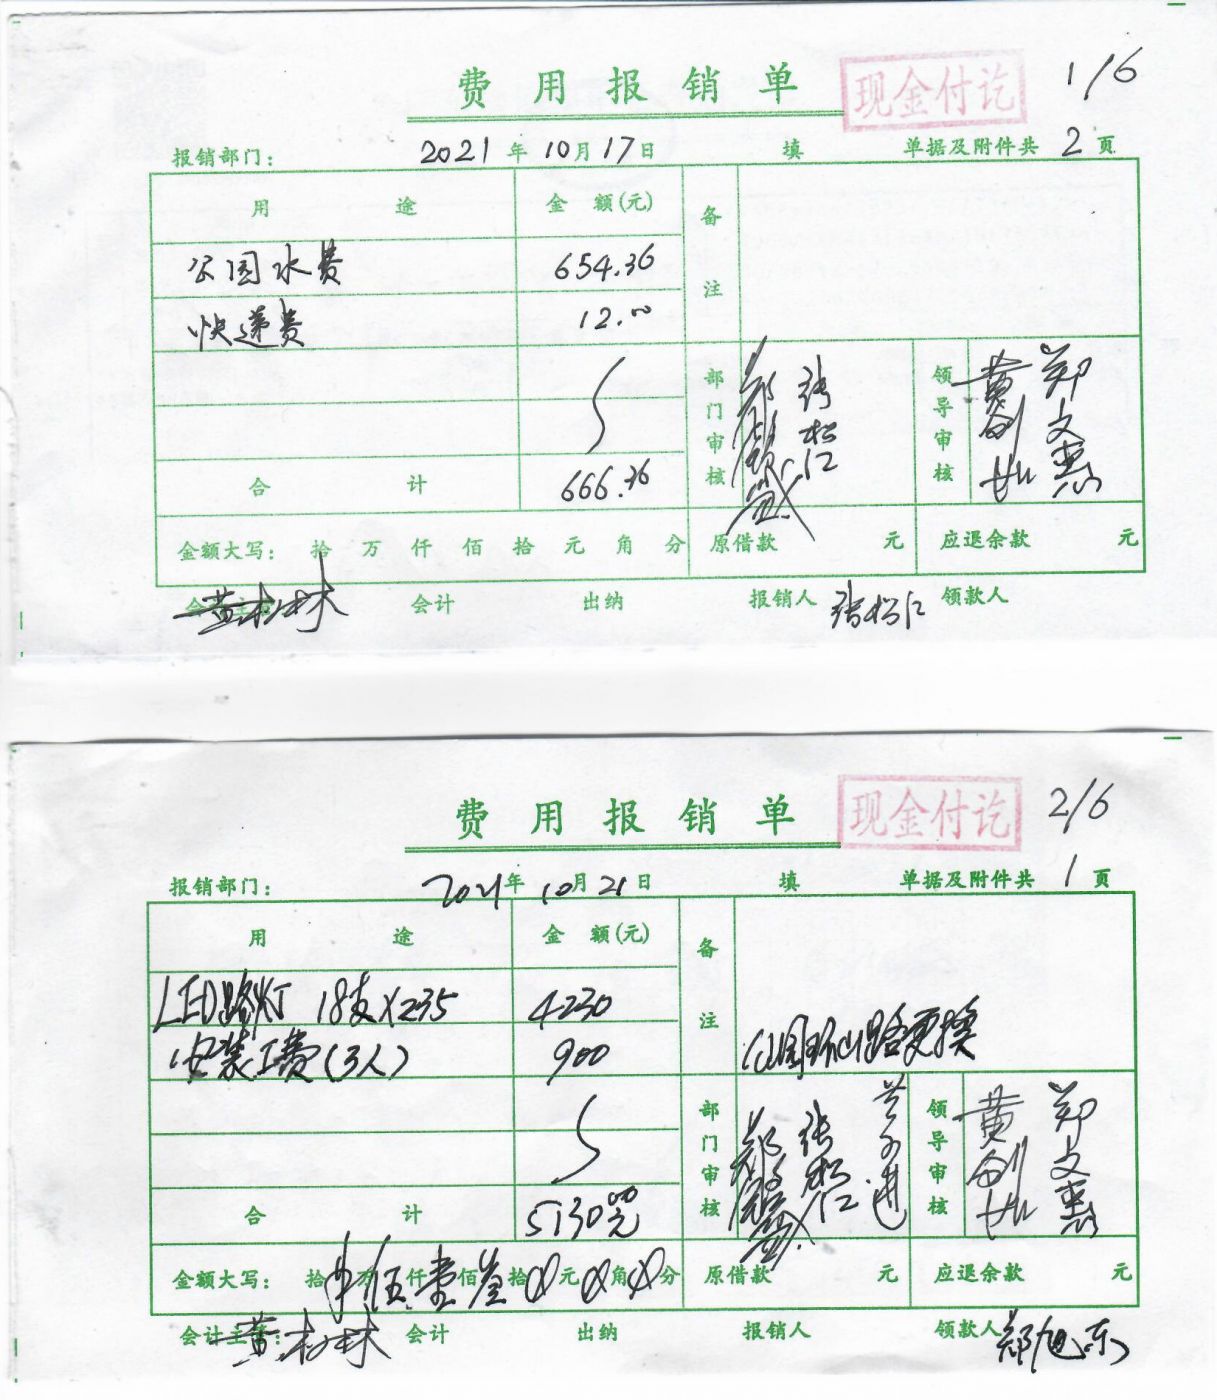 费用报销单 现金付讫 1/6
报销部门： 2021年10月17日 填 单据及附件共 2 页
用途 金额(元) 备注
公园水费 654.36
快递费 12.00
部门审核 张松仁 领导审核 黄剑 郑文惠
合计 666.36
金额大写： 拾 万 仟 佰 拾 元 角 分 原借款 元 应退余款 元
会计主管 会计 出纳 报销人 张松仁 领款人
费用报销单 现金付讫 2/6
报销部门： 2021年10月21日 填 单据及附件共 1 页
用途 金额(元) 备注
LED路灯 18支×235 4230
安装工费(3人) 900 公园环山路更换
部门审核 张松仁 领导审核 黄剑 郑文惠
合计 5130.00元
金额大写： 拾 万伍仟壹佰叁拾0元0角0分 原借款 元 应退余款 元
会计主管： 会计 出纳 报销人 领款人 郑旭东